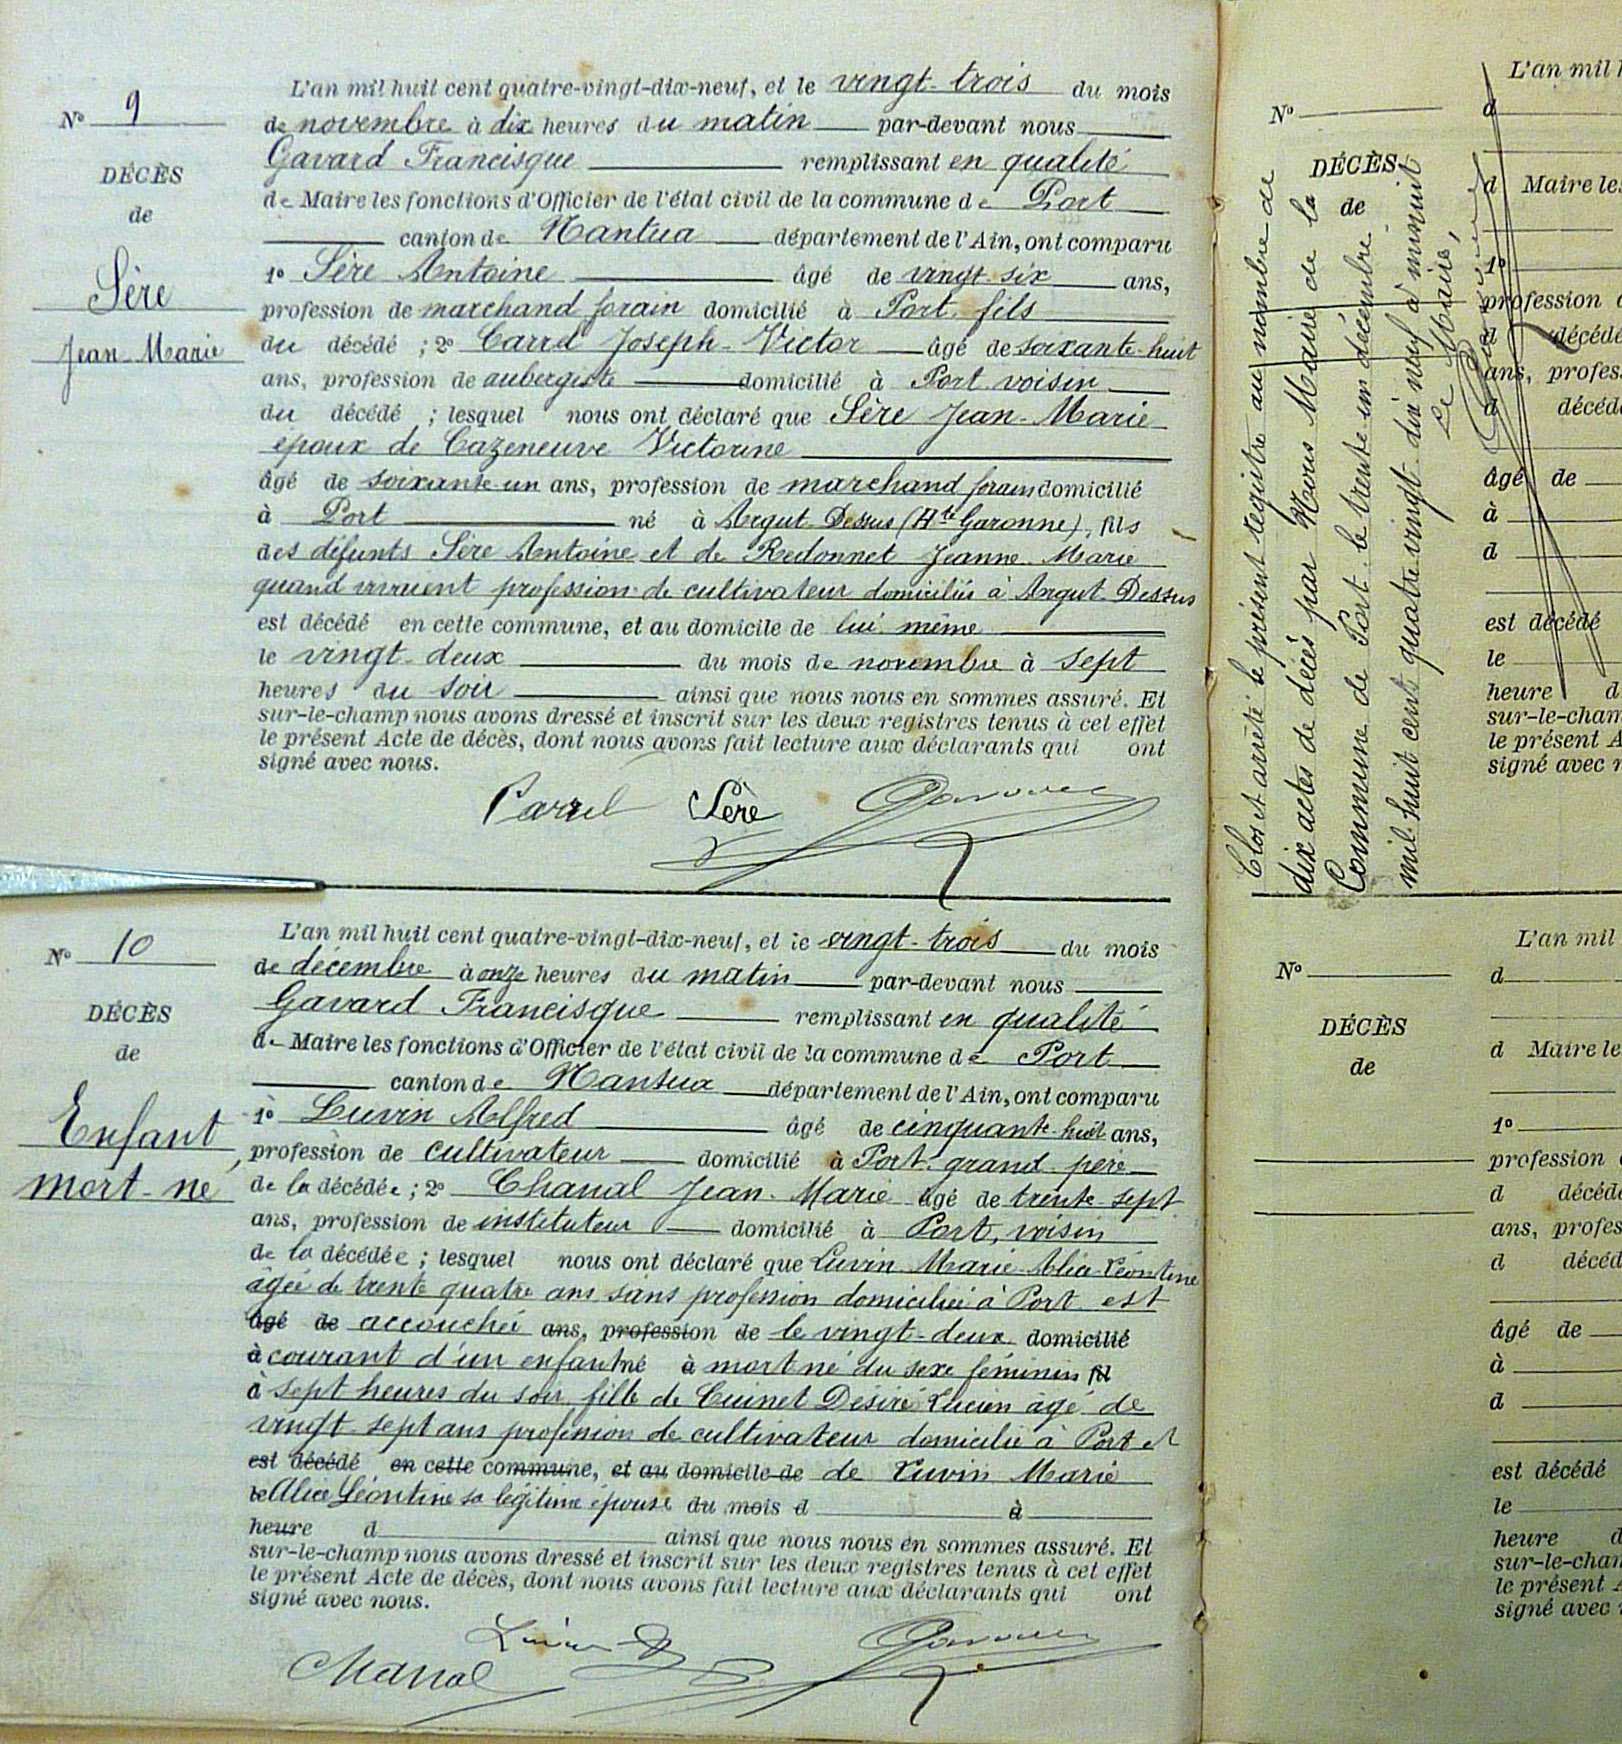 N° 9
DÉCÈS
de
Sère
Jean-Marie
L'an mil huit cent quatre-vingt-dix-neuf, et le vingt-trois du mois
de novembre à dix heures du matin par-devant nous
Gavard Francisque remplissant en qualité
de Maire les fonctions d'Officier de l'état civil de la commune de Port
canton de Nantua département de l'Ain, ont comparu
1° Sère Antoine âgé de vingt-six ans,
profession de marchand forain domicilié à Port, fils
du décédé ; 2° Carrel Joseph-Victor âgé de soixante-huit
ans, profession de aubergiste domicilié à Port voisin
du décédé ; lesquel nous ont déclaré que Sère Jean-Marie
époux de Cazeneuve Victorine
âgé de soixante-un ans, profession de marchand forain domicilié
à Port né à Argut-Dessus (Hte Garonne), fils
des défunts Sère Antoine et de Redonnet Jeanne-Marie
quand vivaient profession de cultivateur domiciliés à Argut-Dessus
est décédé en cette commune, et au domicile de lui même
le vingt-deux du mois de novembre à sept
heures du soir ainsi que nous nous en sommes assuré. Et
sur-le-champ nous avons dressé et inscrit sur les deux registres tenus à cet effet
le présent Acte de décès, dont nous avons fait lecture aux déclarants qui ont
signé avec nous.
Carrel Sère
N° 10
DÉCÈS
de
Enfant
mort-né
L'an mil huit cent quatre-vingt-dix-neuf, et le vingt-trois du mois
de décembre à onze heures du matin par-devant nous
Gavard Francisque remplissant en qualité
de Maire les fonctions d'Officier de l'état civil de la commune de Port
canton de Nantua département de l'Ain, ont comparu
1° Luvin Alfred âgé de cinquante-huit ans,
profession de cultivateur domicilié à Port, grand-père
de la décédée ; 2° Chanal Jean-Marie âgé de trente-sept
ans, profession de instituteur domicilié à Port, voisin
de la décédée ; lesquel nous ont déclaré que Luvin Marie-Alice-Léontine
âgée de trente quatre ans sans profession domiciliée à Port est
âgé de accouchée ans, profession de le vingt-deux domicilié
à courant d'un enfant né à mort né du sexe féminin fil
à sept heures du soir fille de Cuinet Désiré Lucien âgé de
vingt-sept ans profession de cultivateur domicilié à Port et
est décédé en cette commune, et au domicile de de Luvin Marie
le Alice Léontine sa légitime épouse du mois d à
heure d ainsi que nous nous en sommes assuré. Et
sur-le-champ nous avons dressé et inscrit sur les deux registres tenus à cet effet
le présent Acte de décès, dont nous avons fait lecture aux déclarants qui ont
signé avec nous.
Chanal
N°
DÉCÈS
de
Clos et arrêté le présent registre au nombre de
dix actes de décès par Nous Maire de la
Commune de Port le trente un décembre
mil huit cent quatre vingt dix neuf à minuit
Le Maire,
L'an mil h
d
d Maire les
1°
profession d
d décédé
ans, profess
d décédé
âgé de
à
d
est décédé
le
heure d
sur-le-cham
le présent A
signé avec n
N°
DÉCÈS
de
L'an mil
d
d Maire le
1°
profession d
d décédé
ans, profes
d décéd
âgé de
à
d
est décédé
le
heure d
sur-le-chan
le présent A
signé avec n